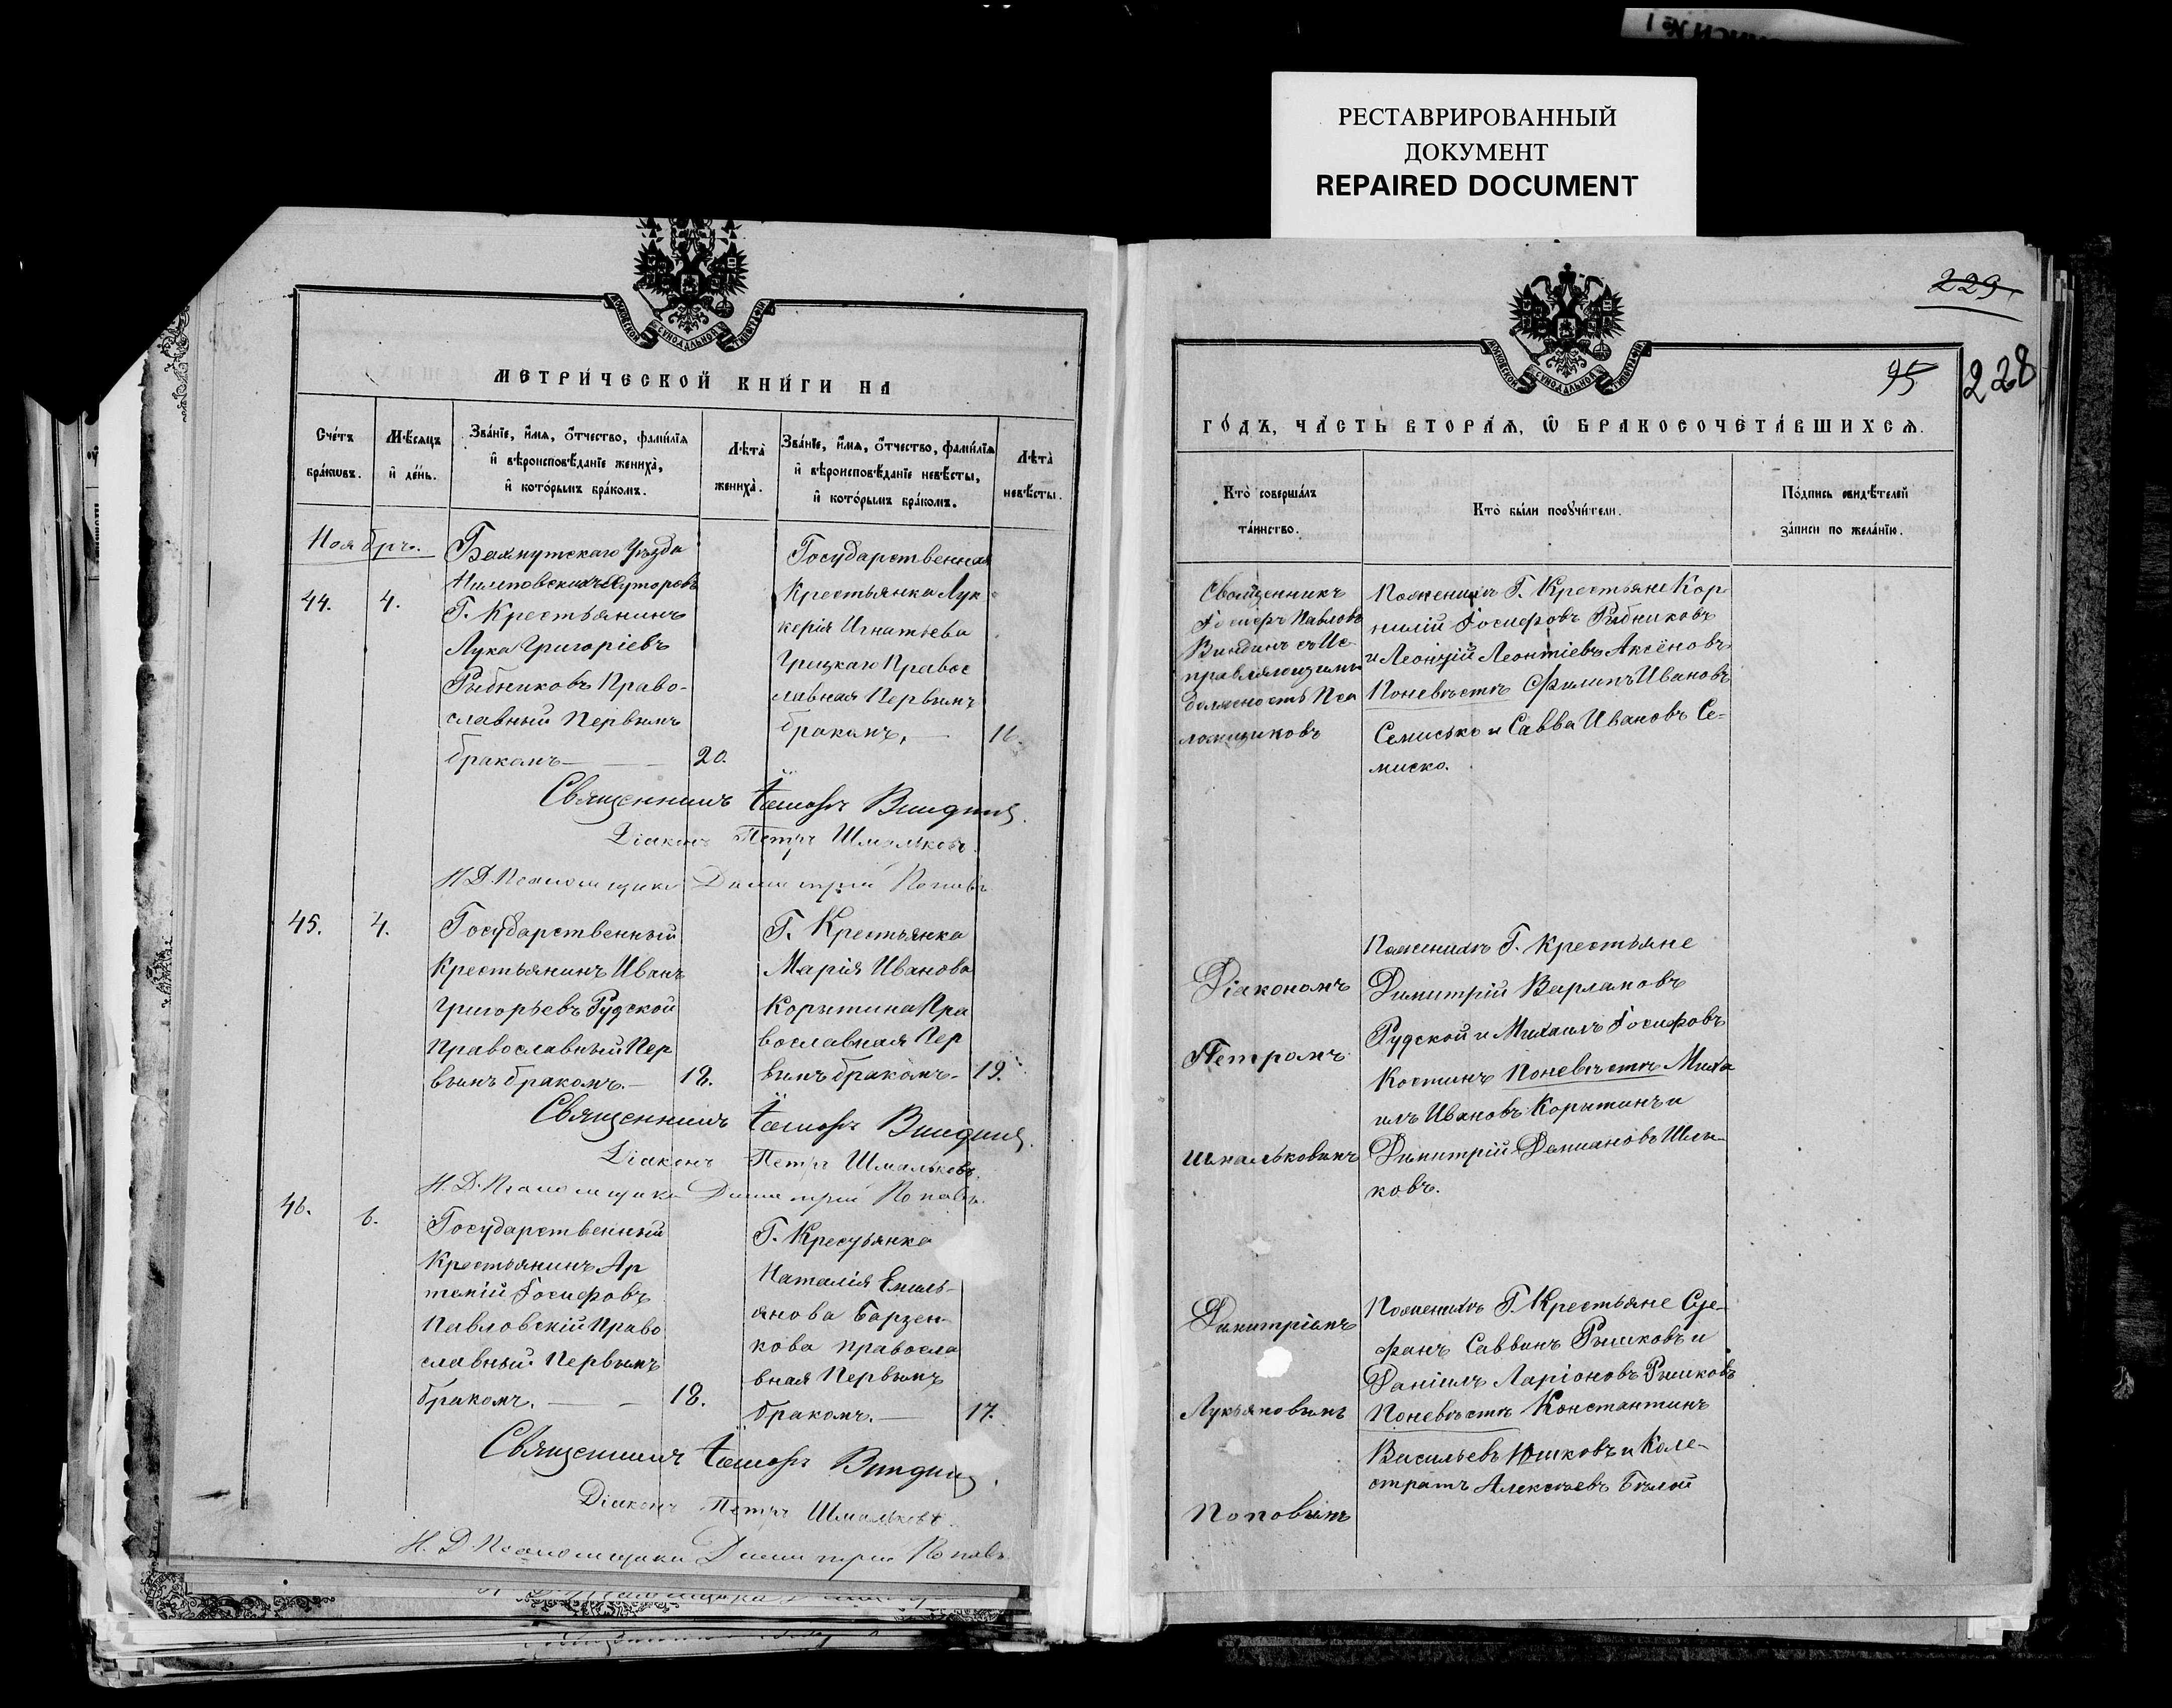 РЕСТАВРИРОВАННЫЙ
ДОКУМЕНТ
REPAIRED DOCUMENT
МОСКОВСКОЙ СѴНОДАЛЬНОЙ ТИПОГРАФІИ
МЕТРИ́ЧЕСКОЙ КНИ́ГИ НА
Сче́тъ
бра́кѡвъ.
Мѣ́сяцъ
и҆ де́нь.
Зва́нїе, и҆́мя, ѻ҆́тчество, фами́лїя
и҆ вѣроисповѣ́данїе жениха̀,
и҆ кото́рымъ бра́комъ.
Лѣта̀
жениха̀.
Зва́нїе, и҆́мя, ѻ҆́тчество, фами́лїя
и҆ вѣроисповѣ́данїе невѣ́сты,
и҆ кото́рымъ бра́комъ.
Лѣта̀
невѣ́сты.
Ноябрь.
44.
4.
Бахмутскаго Уѣзда
Г. Крестьянинъ
Лука Григоріевъ
Рыбниковъ Право-
славный Первымъ
бракомъ
20.
Государственная
Крестьянка Лук
керія Игнатьева
Грицкаго Правос
лавная Первымъ
бракомъ.
16.
Священникъ Іосифъ Виндинъ
Діаконъ Петръ Шмальковъ.
И.Д. Псаломщика Димитрій Поповъ
45.
4.
Государственный
Крестьянинъ Иванъ
Григорьевъ Рудской
Православный Пер
вымъ бракомъ.
18.
Г. Крестьянка
Марія Иванова
Корытина Пра
вославная Пер
вымъ бракомъ
19.
Священникъ Іосифъ Виндинъ
Діаконъ Петръ Шмальковъ
И.Д. Псаломщика Димитрій Поповъ.
46.
6.
Государственный
Крестьянинъ Ар
темій Іосифовъ
Павловскій Право
славный Первымъ
бракомъ.
18.
Г. Крестьянка
Наталія Емиль-
янова Барзен-
кова правосла
вная Первымъ
бракомъ.
17.
Священникъ Іосифъ Виндинъ
Діаконъ Петръ Шмальковъ
И.Д. Псаломщика Димитрій Поповъ
229
95
228
МОСКОВСКОЙ СѴНОДАЛЬНОЙ ТИПОГРАФІИ
ГО́ДЪ, ЧА́СТЬ ВТОРА́Я, Ѡ҆ БРАКОСОЧЕТА́ВШИХСЯ.
Кто̀ соверша́лъ
та́инство.
Кто̀ бы́ли порꙋчи́тели.
По́дпись свидѣ́телей
за́писи по жела́нїю.
Священникъ
Іосифъ Павловъ
Виндинъ съ Ис-
правляющимъ
должность Пса
ломщиковъ
Поженихѣ Г. Крестьяне Кор-
нилій Іосифовъ Рыбниковъ
и Леонтій Леонтіевъ Аксёновъ
Поневѣстѣ Филипъ Ивановъ
Семисько и Савва Ивановъ Се-
миско.
Діакономъ
Петромъ
Шмальковымъ
Поженихѣ Г. Крестьяне
Димитрій Варламовъ
Рудской и Михаилъ Іосифовъ
Костинъ Поневѣстѣ Миха
илъ Ивановъ Корытинъ и
Димитрій Деміановъ Шлы-
ковъ.
Димитріемъ
Лукьяновымъ
Поповымъ
Поженихѣ Г. Крестьяне Сте-
фанъ Саввинъ Рышковъ и
Даніилъ Ларіоновъ Рышковъ
Поневѣстѣ Константинъ
Васильевъ Юшковъ и Кале-
стратъ Алексѣевъ Бѣлой